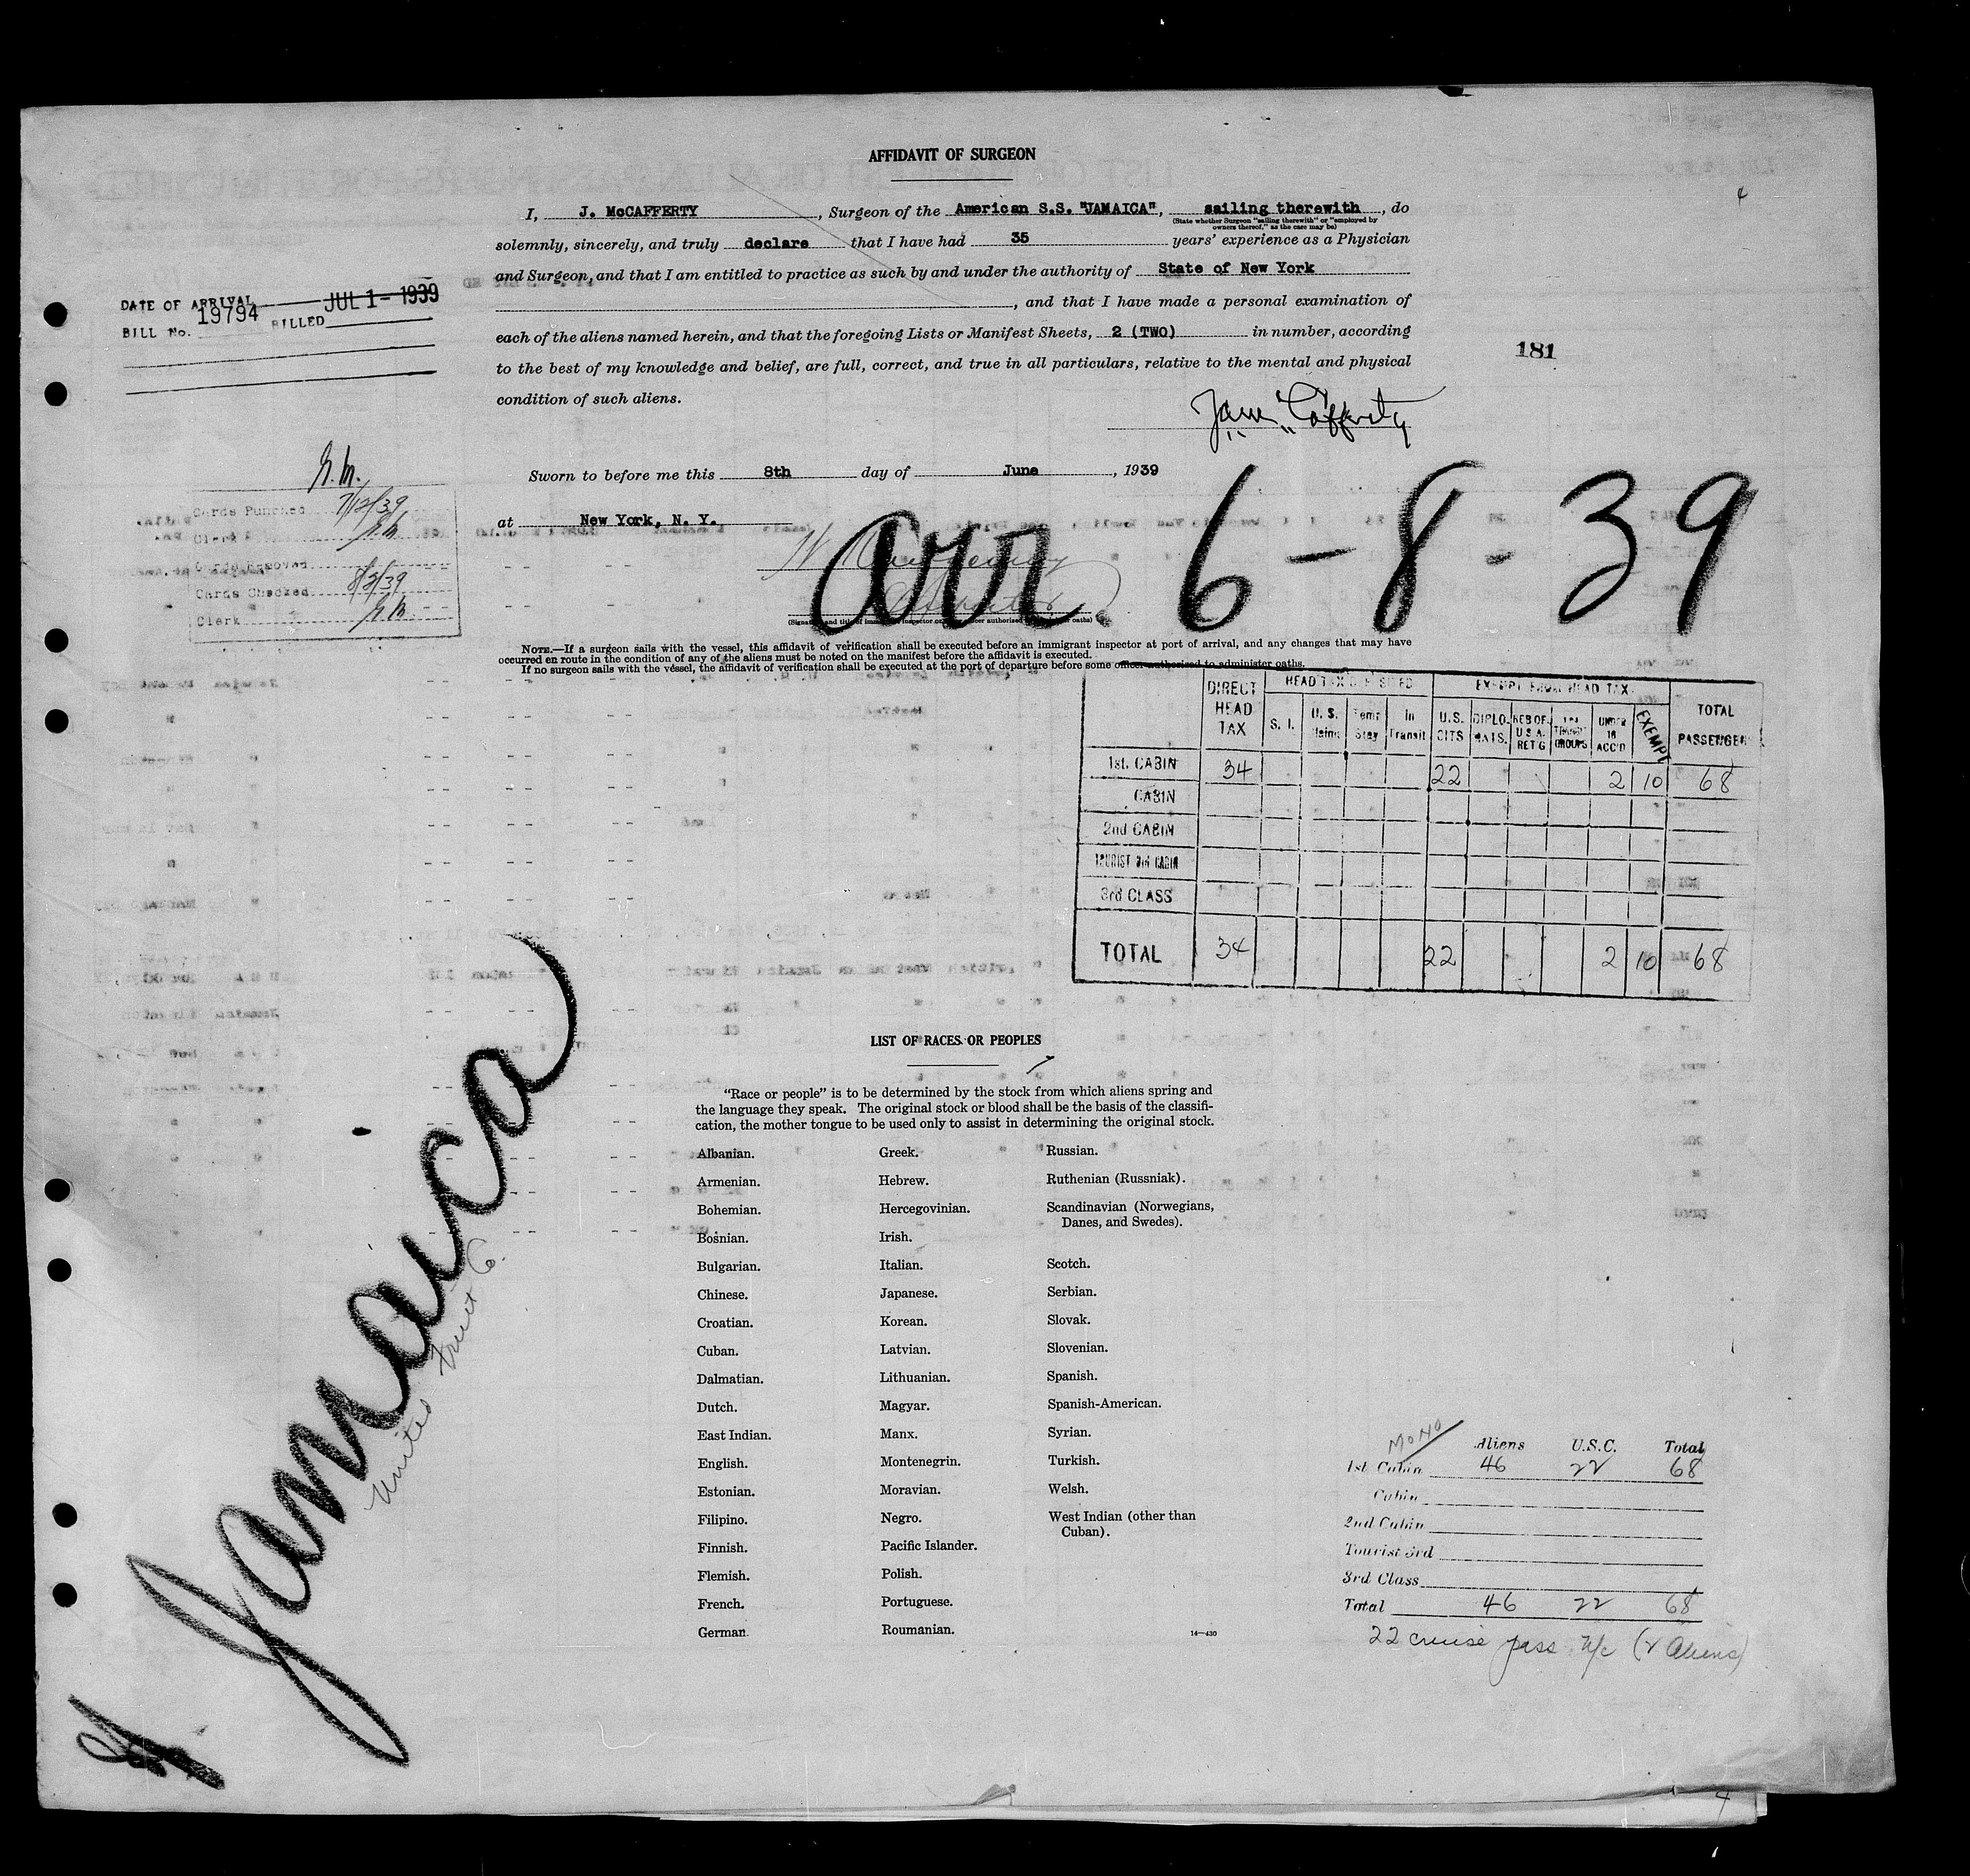 AFFIDAVIT OF SURGEON
I, J. McCAFFERTY, Surgeon of the American S.S. "JAMAICA", sailing therewith, do
(State whether Surgeon "sailing therewith" or "employed by
owners thereof," as the case may be)
solemnly, sincerely, and truly declare that I have had 35 years' experience as a Physician
and Surgeon, and that I am entitled to practice as such by and under the authority of State of New York
, and that I have made a personal examination of
each of the aliens named herein, and that the foregoing Lists or Manifest Sheets, 2 (TWO) in number, according
to the best of my knowledge and belief, are full, correct, and true in all particulars, relative to the mental and physical
condition of such aliens.
DATE OF ARRIVAL JUL 1 - 1939
BILL No. 19794 BILLED
181
Sworn to before me this 8th day of June, 1939
at New York, N. Y.
arr. 6-8-39
Cards Punched 7/12/39
Clerk
Cards Checked 8/2/39
Clerk
NOTE.—If a surgeon sails with the vessel, this affidavit of verification shall be executed before an immigrant inspector at port of arrival, and any changes that may have
occurred en route in the condition of any of the aliens must be noted on the manifest before the affidavit is executed.
If no surgeon sails with the vessel, the affidavit of verification shall be executed at the port of departure before some officer authorized to administer oaths.
DIRECT HEAD TAX
HEAD TAX DEPOSITED
EXEMPT FROM HEAD TAX
TOTAL PASSENGER
S. I. U. S. Temp Stay In Transit U.S. CITS DIPLO-MATS. RES OF U.S.A. RET'G UNDER 16 ACC'D EXEMPT
1st. CABIN 34 22 2 10 68
CABIN
2nd CABIN
TOURIST 3rd CABIN
3rd CLASS
TOTAL 34 22 2 10 68
Jamaica
United Fruit Co.
LIST OF RACES OR PEOPLES
"Race or people" is to be determined by the stock from which aliens spring and
the language they speak. The original stock or blood shall be the basis of the classifi-
cation, the mother tongue to be used only to assist in determining the original stock.
Albanian.
Armenian.
Bohemian.
Bosnian.
Bulgarian.
Chinese.
Croatian.
Cuban.
Dalmatian.
Dutch.
East Indian.
English.
Estonian.
Filipino.
Finnish.
Flemish.
French.
German.
Greek.
Hebrew.
Hercegovinian.
Irish.
Italian.
Japanese.
Korean.
Latvian.
Lithuanian.
Magyar.
Manx.
Montenegrin.
Moravian.
Negro.
Pacific Islander.
Polish.
Portuguese.
Roumanian.
Russian.
Ruthenian (Russniak).
Scandinavian (Norwegians,
Danes, and Swedes).
Scotch.
Serbian.
Slovak.
Slovenian.
Spanish.
Spanish-American.
Syrian.
Turkish.
Welsh.
West Indian (other than
Cuban).
14—430
MONO
Aliens U.S.C. Total
1st Cabin 46 22 68
Cabin
2nd Cabin
Tourist 3rd
3rd Class
Total 46 22 68
22 cruise pass (2 Aliens)